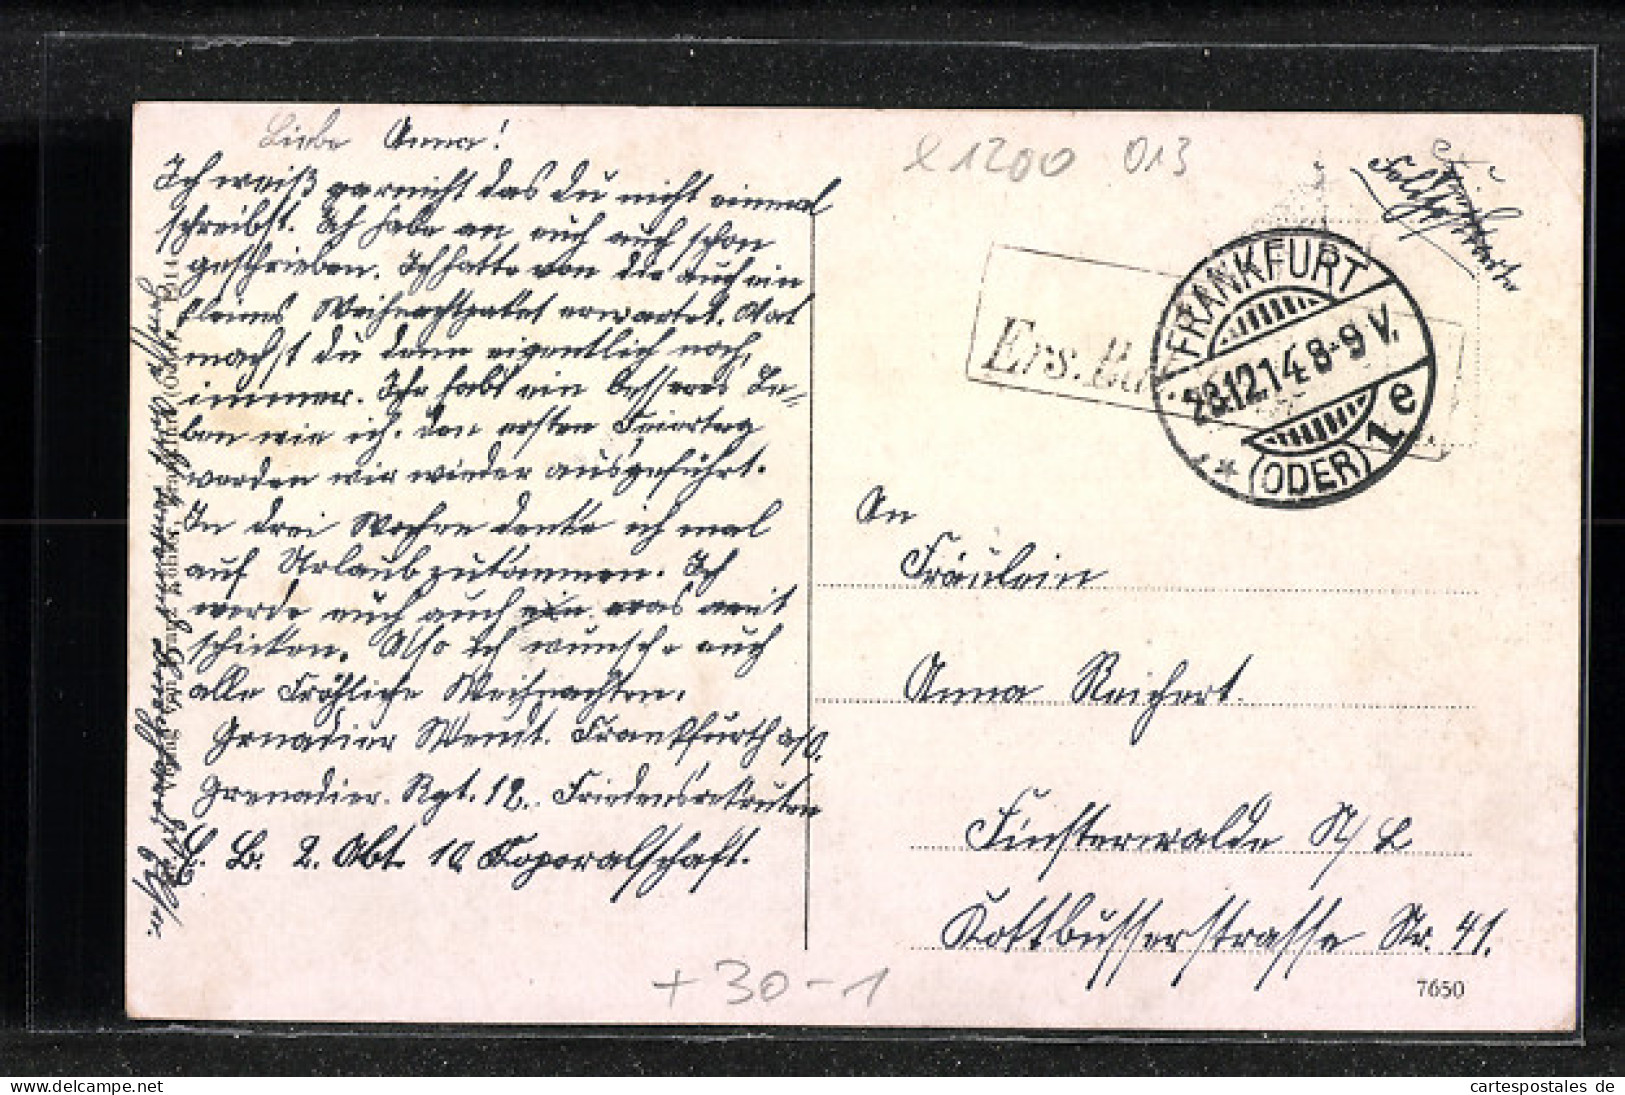 Liebe Anna!
Ich weiß garnicht das du nicht einmal
schreibst. Ich habe an euch auch schon
geschrieben. Ich hatte von dir auch ein
kleines Weihnachtspaket erwartet. Wat
machst du denn eigentlich noch,
immer. Ihr habt ein besseres Le=
ben wie ich. den ersten Feiertag
worden wir wieder ausgeführt.
In drei Wochen denke ich mal
auf Urlaub zukommen. Ich
werde euch auch was mit
schicken. Also ich wünsche euch
alle Fröhliche Weihnachten.
Grenadier Wendt. Frankfurth a/O.
Grenadier. Rgt. 12. Friedensrekruten
E. B. 2. Abt. 10 Koporalschaft.
1200 013
Feldpostkarte
Ers.
FRANKFURT
28.12.14 8-9 V.
* (ODER) 1 e
An
Fräulein
Anna Reichert.
Finsterwalde N/L
Kottbusserstrasse Nr. 41.
+ 30-1
7650
the best place to buy and sell collectibles
cartespostales de